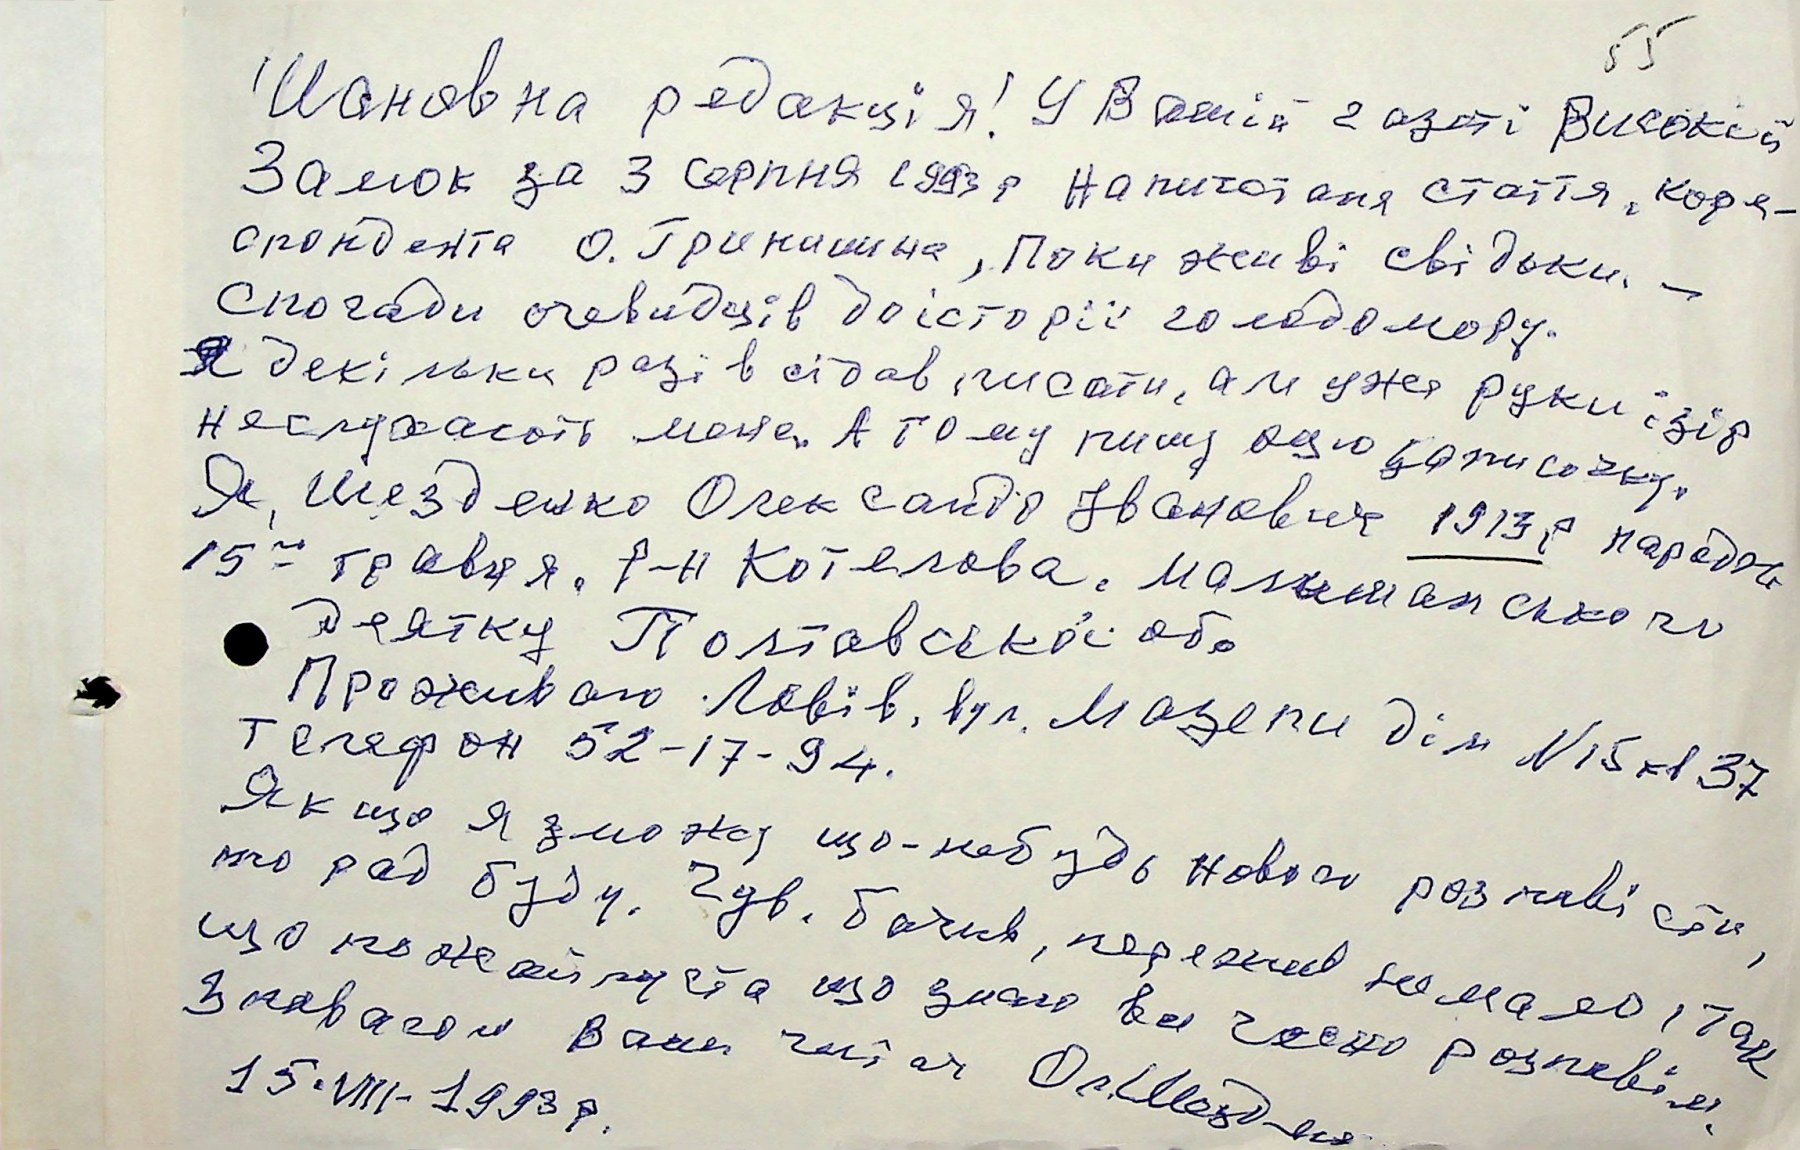 55
Шановна редакція! У Вашій газеті Високий
Замок за 3 серпня 1993 р Напичатана стаття, коре-
спондента О. Гринишина, Поки живі свідки. —
Спогади очевидців до історії голодомору.
Я декілька разів сідав писати, али уже руки ізір
неслухають мене. А тому пишу оцю записочку.
Я, Шезденко Олександр Іванович 1913 р народж
15го травня. р-н Котелова. Малишанського
деятку Полтавської об.
Проживаю Львів, вул. Мазепи дім N 15 кв 37
Телефон 52-17-94.
Якщо я зможу що-небудь нового розповісти,
то рад буду. Чув. бачив, пережив немало, так
що пожайлуста що знаю Вам чесно розповім.
З повагою Ваш читач Ол.Шезденко
15.VIII-1993 р.